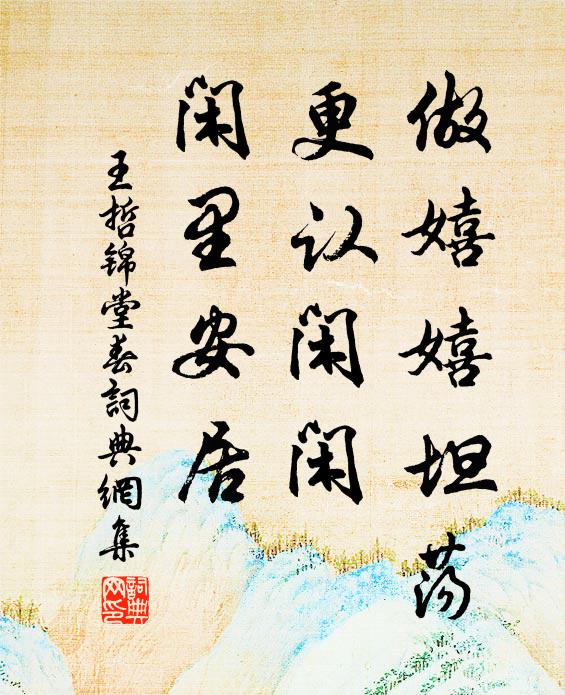 做嬉嬉坦荡
更认闲闲
闲里安居
王哲锦堂春詞典網集
詞典網印